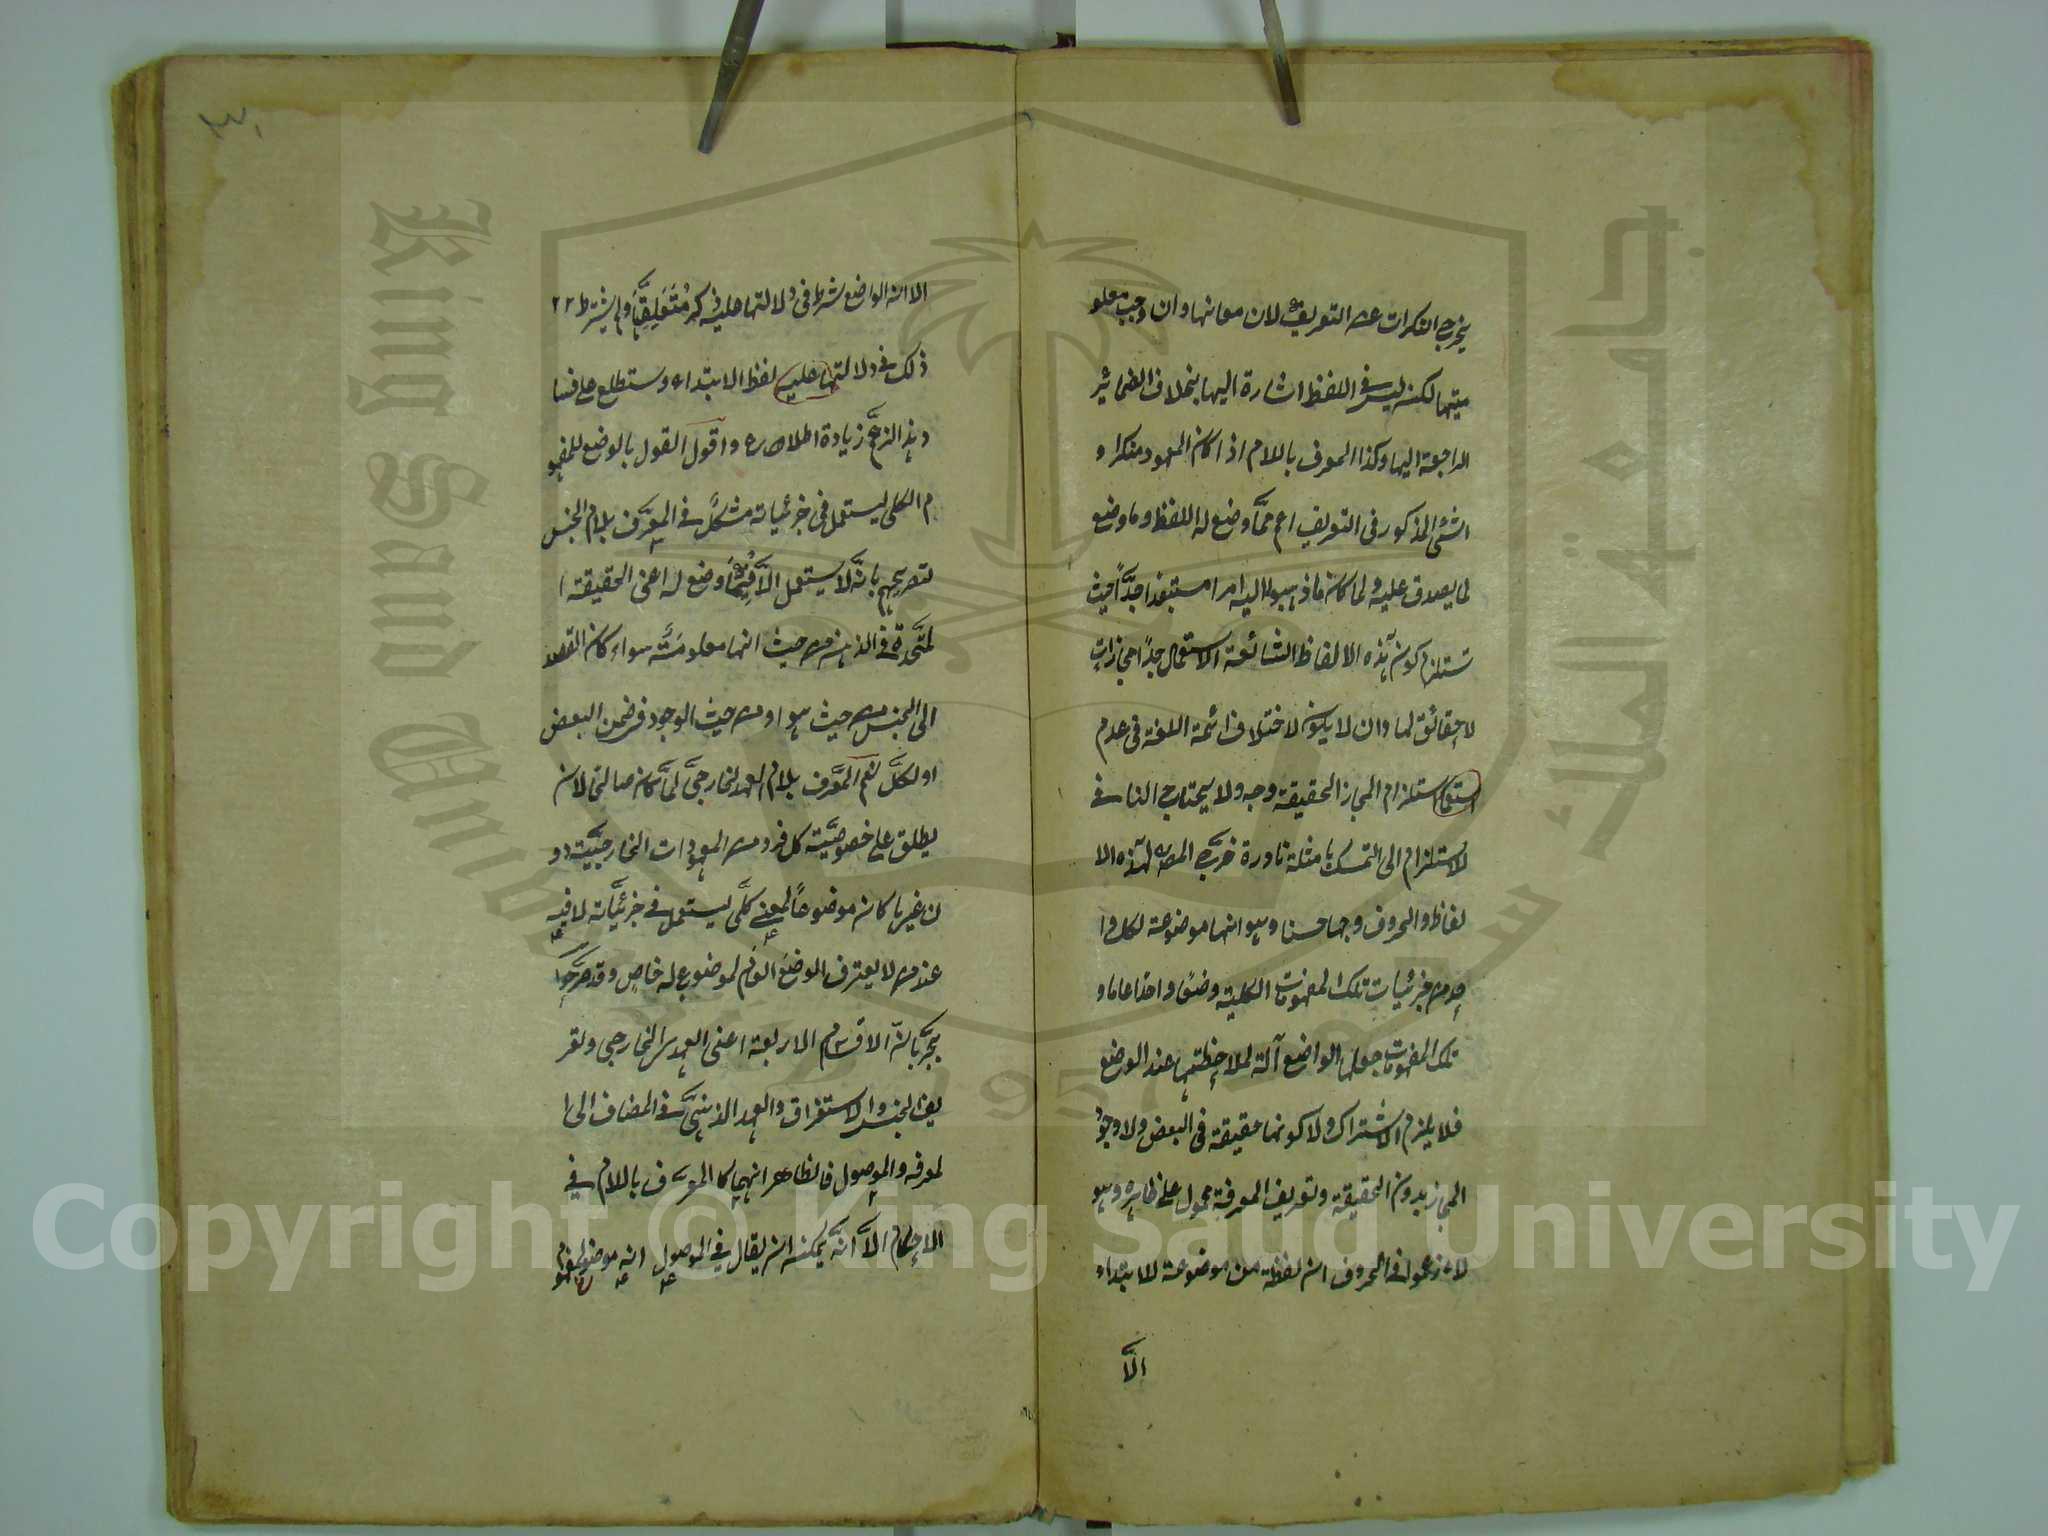 يخرج النكرات عن التعريف لان معانيها وان وجب معلو
ميتها لكنه ليس في اللفظ اشارة اليها بخلاف الضمائر
الراجعة اليها وكذا المعرف باللام اذا كان المعهود منكرا و
الشئ المذكور في التعريف اعم مما وضع له اللفظ وما وضع
لما يصدق عليه ولما كان ما ذهبوا اليه امرا مستبعدا جدًّا حيث
تستلزم كون هذه الالفاظ الشائعة الاستعمال جدًّا مجازات
لا حقائق لها وان لا يكون لاختلاف ائمة اللغة في عدم
استلزام المجاز الحقيقة وجه ولا يحتاج النا في
لاستلزام الى التمسك بامثلة نادرة المص لهذه الا
لفاظ والحروف وجها حسنا وهو انها موضوعة لكل وا
حد من جزئيات تلك المفهومات الكلية وضعا واحدا عاما و
تلك المفهومات جعلها الواضع آلة لملاحظتها عند الوضع
فلا يلزم الاشتراك ولا كونها حقيقة في البعض ولا وجو
المجاز بدون الحقيقة وتعريف المعرفة محمول على ظاهره وهو
لاء زعموا في الحروف ان لفظة من موضوعة للابتداء
الَّا
الا ان الواضع شرط في دلالتها عليه ذكر مُتَعَلِقِهَا ولم يشترط
ذلك في دلالتها عليه لفظ الابتداء وستطلع على فسا
د هذا الزعم زيادة اطلاع واقول القول بالوضع للمفهو
م الكلي ليستعمل في جزئياته مشكل في المعرف بلام الجنس
لتصريحهم بانه لا يستعمل الَّا فيما وضع له اعنى الحقيقة ا
لمتحدة في الذهن من حيث انها معلومة سواء كان القصد
الى الجنس من حيث هو او من حيث الوجود في ضمن البعض
او الكل نعم المعرف بلام العهد الخارجي لما كان صالحا لان
يطلق على خصوصية كل فرد من المعهودات الخارجيَّة دو
ن غيرها كان موضوعاً لمعنى كلي ليستعمل في جزئياته لا فيه
عند من لا يعترف الوضع العام لموضوع له خاص وقد صرحوا
بجريان الاقسام الاربعة اعنى العهد الخارجي وتعر
يف الجنس والاستغراق والعهد الذهني في المضاف الى ا
لمعرفه والموصول فالظاهر انهما كالمعرف باللام في
الاحكام الَّا انه يمكن ان يقال في الموصول انه موضوع لمفهو
Copyright © King Saud University
King Saud University
جامعة الملك سعود
1957